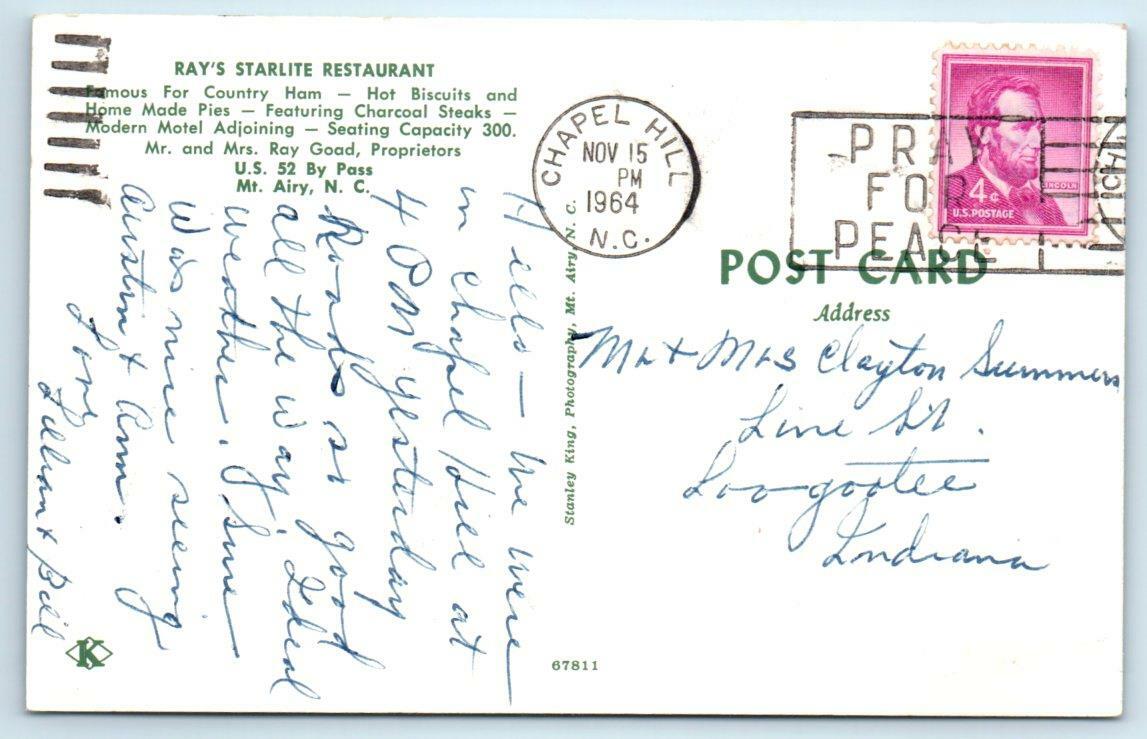 RAY'S STARLITE RESTAURANT
Famous For Country Ham — Hot Biscuits and
Home Made Pies — Featuring Charcoal Steaks —
Modern Motel Adjoining — Seating Capacity 300.
Mr. and Mrs. Ray Goad, Proprietors
U.S. 52 By Pass
Mt. Airy, N. C.
Hello — We were
in Chapel Hill at
4 PM yesterday
Roads so good
all the way. Ideal
weather. Sure
Was nice seeing
Austin & Ann.
Love
Lillian & Bill
K
Stanley King, Photography, Mt. Airy, N. C.
67811
CHAPEL HILL
NOV 15
PM
1964
N.C.
PRAY
FOR
PEACE
4¢
LINCOLN
U.S. POSTAGE
POST CARD
Address
Mr + Mrs Clayton Summers
Line St.
Loogootee
Indiana